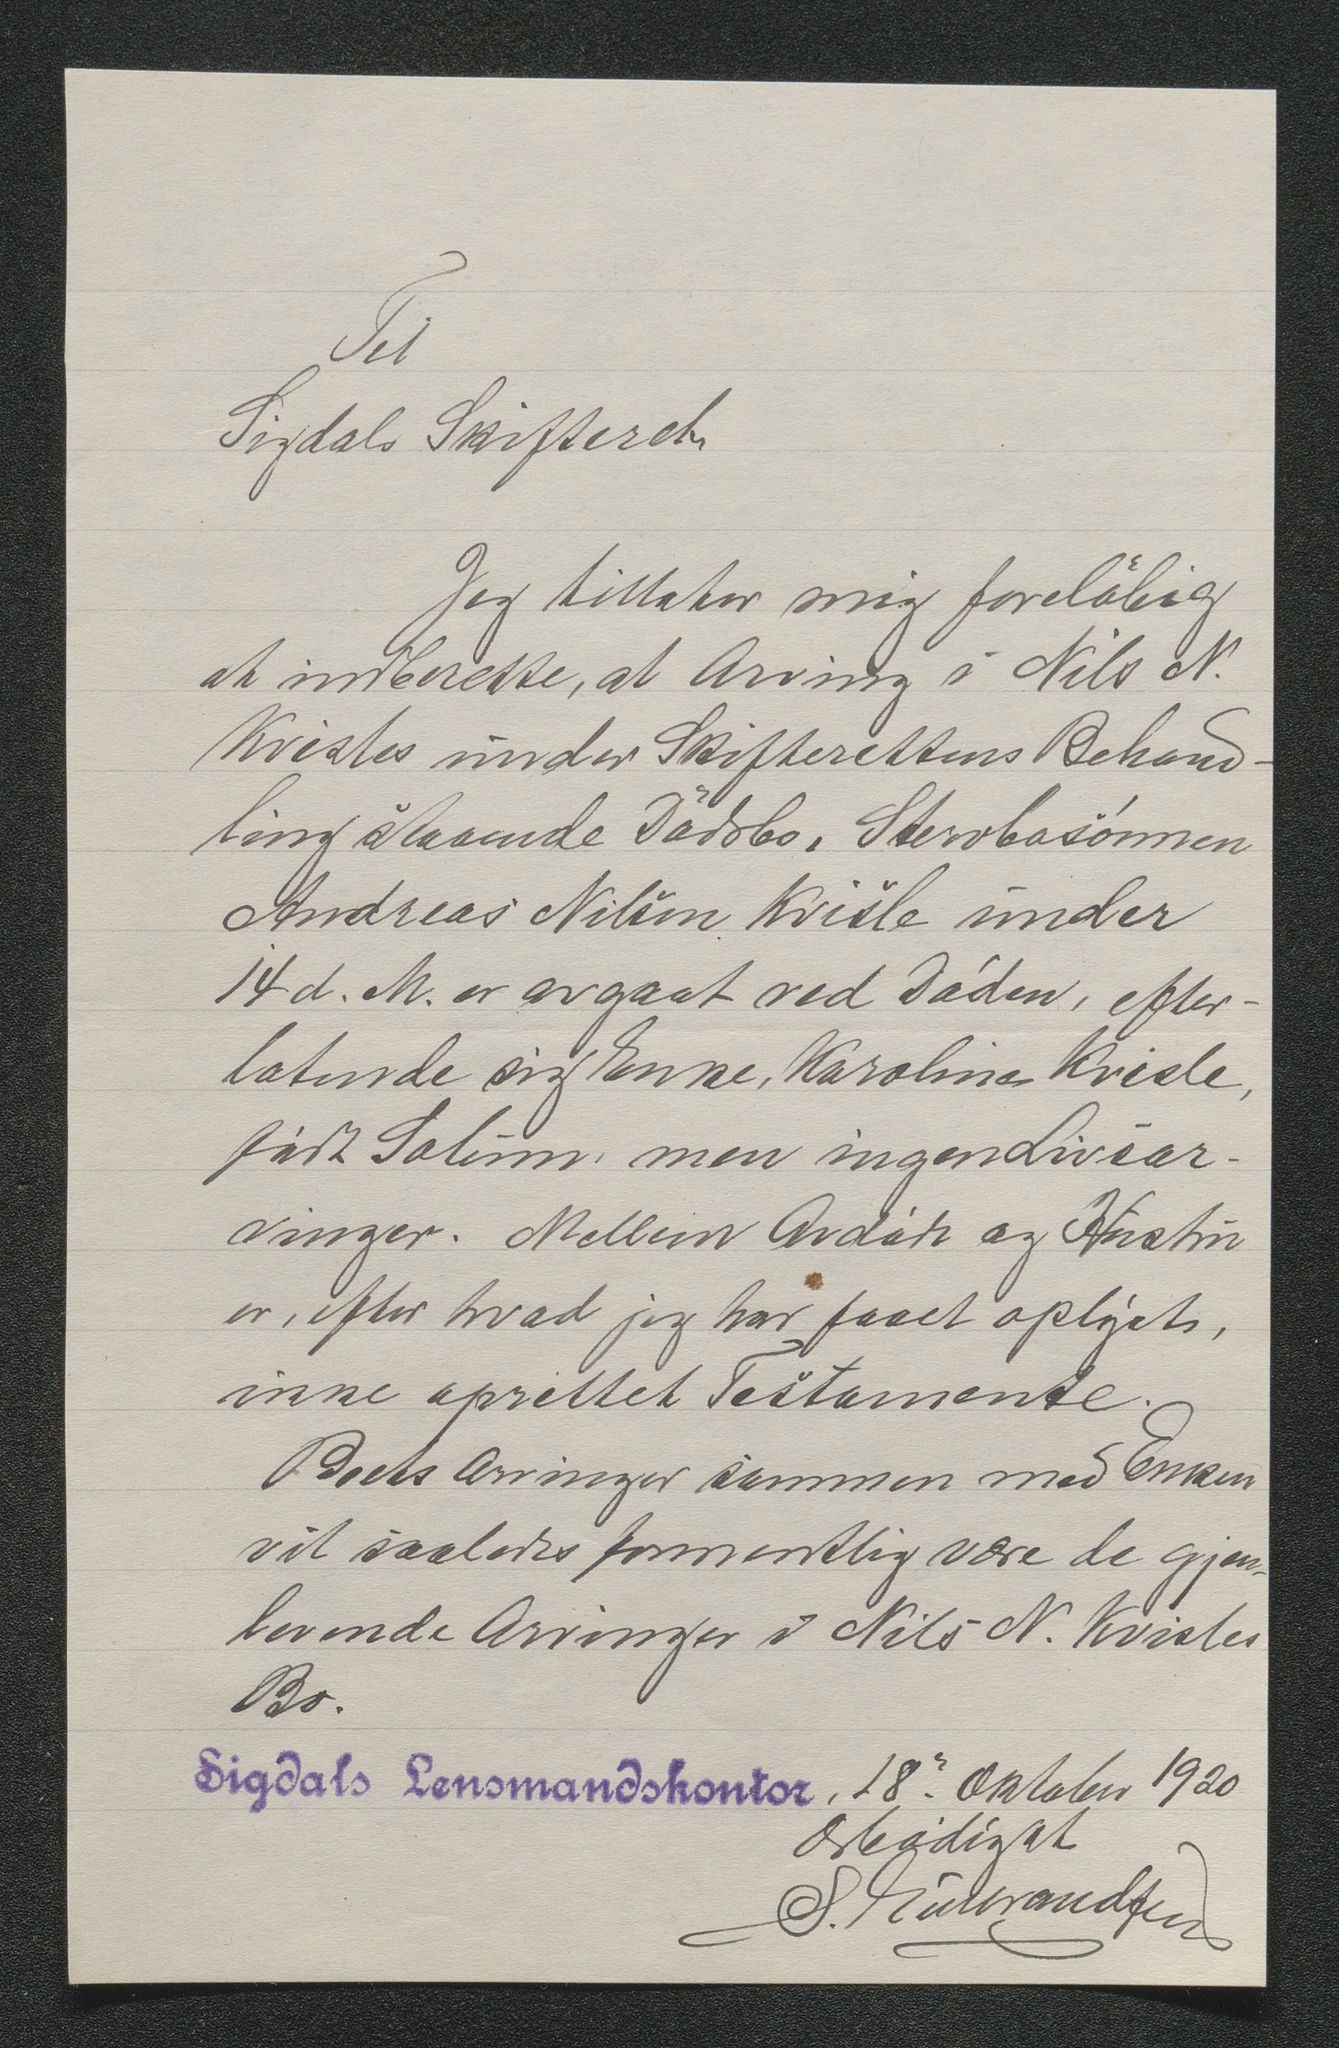 Til
Sigdals Skifteret.
Jeg tillater mig foreløbig
at indberette, at Arving i Nils N.
Kvisles under Skifterettens Behand-
ling staaende Dødsbo, Stervbosønnen
Andreas Nilsen Kvisle under
14 d. M. er avgaat ved Døden, efter-
latende sig Enke, Karoline Kvisle,
født Solum, men ingen Livsar-
vinger. Mellem Avdøde og Hustru
er, efter hvad jeg har faaet oplyst,
ikke oprettet Testamente.
Boets Arvinger sammen med Enken
vil saaledes formentlig være de gjen-
levende Arvinger i Nils N. Kvisles
Bo.
Sigdals Lensmandskontor, 18. Oktober 1920
Ærbødigst
S.